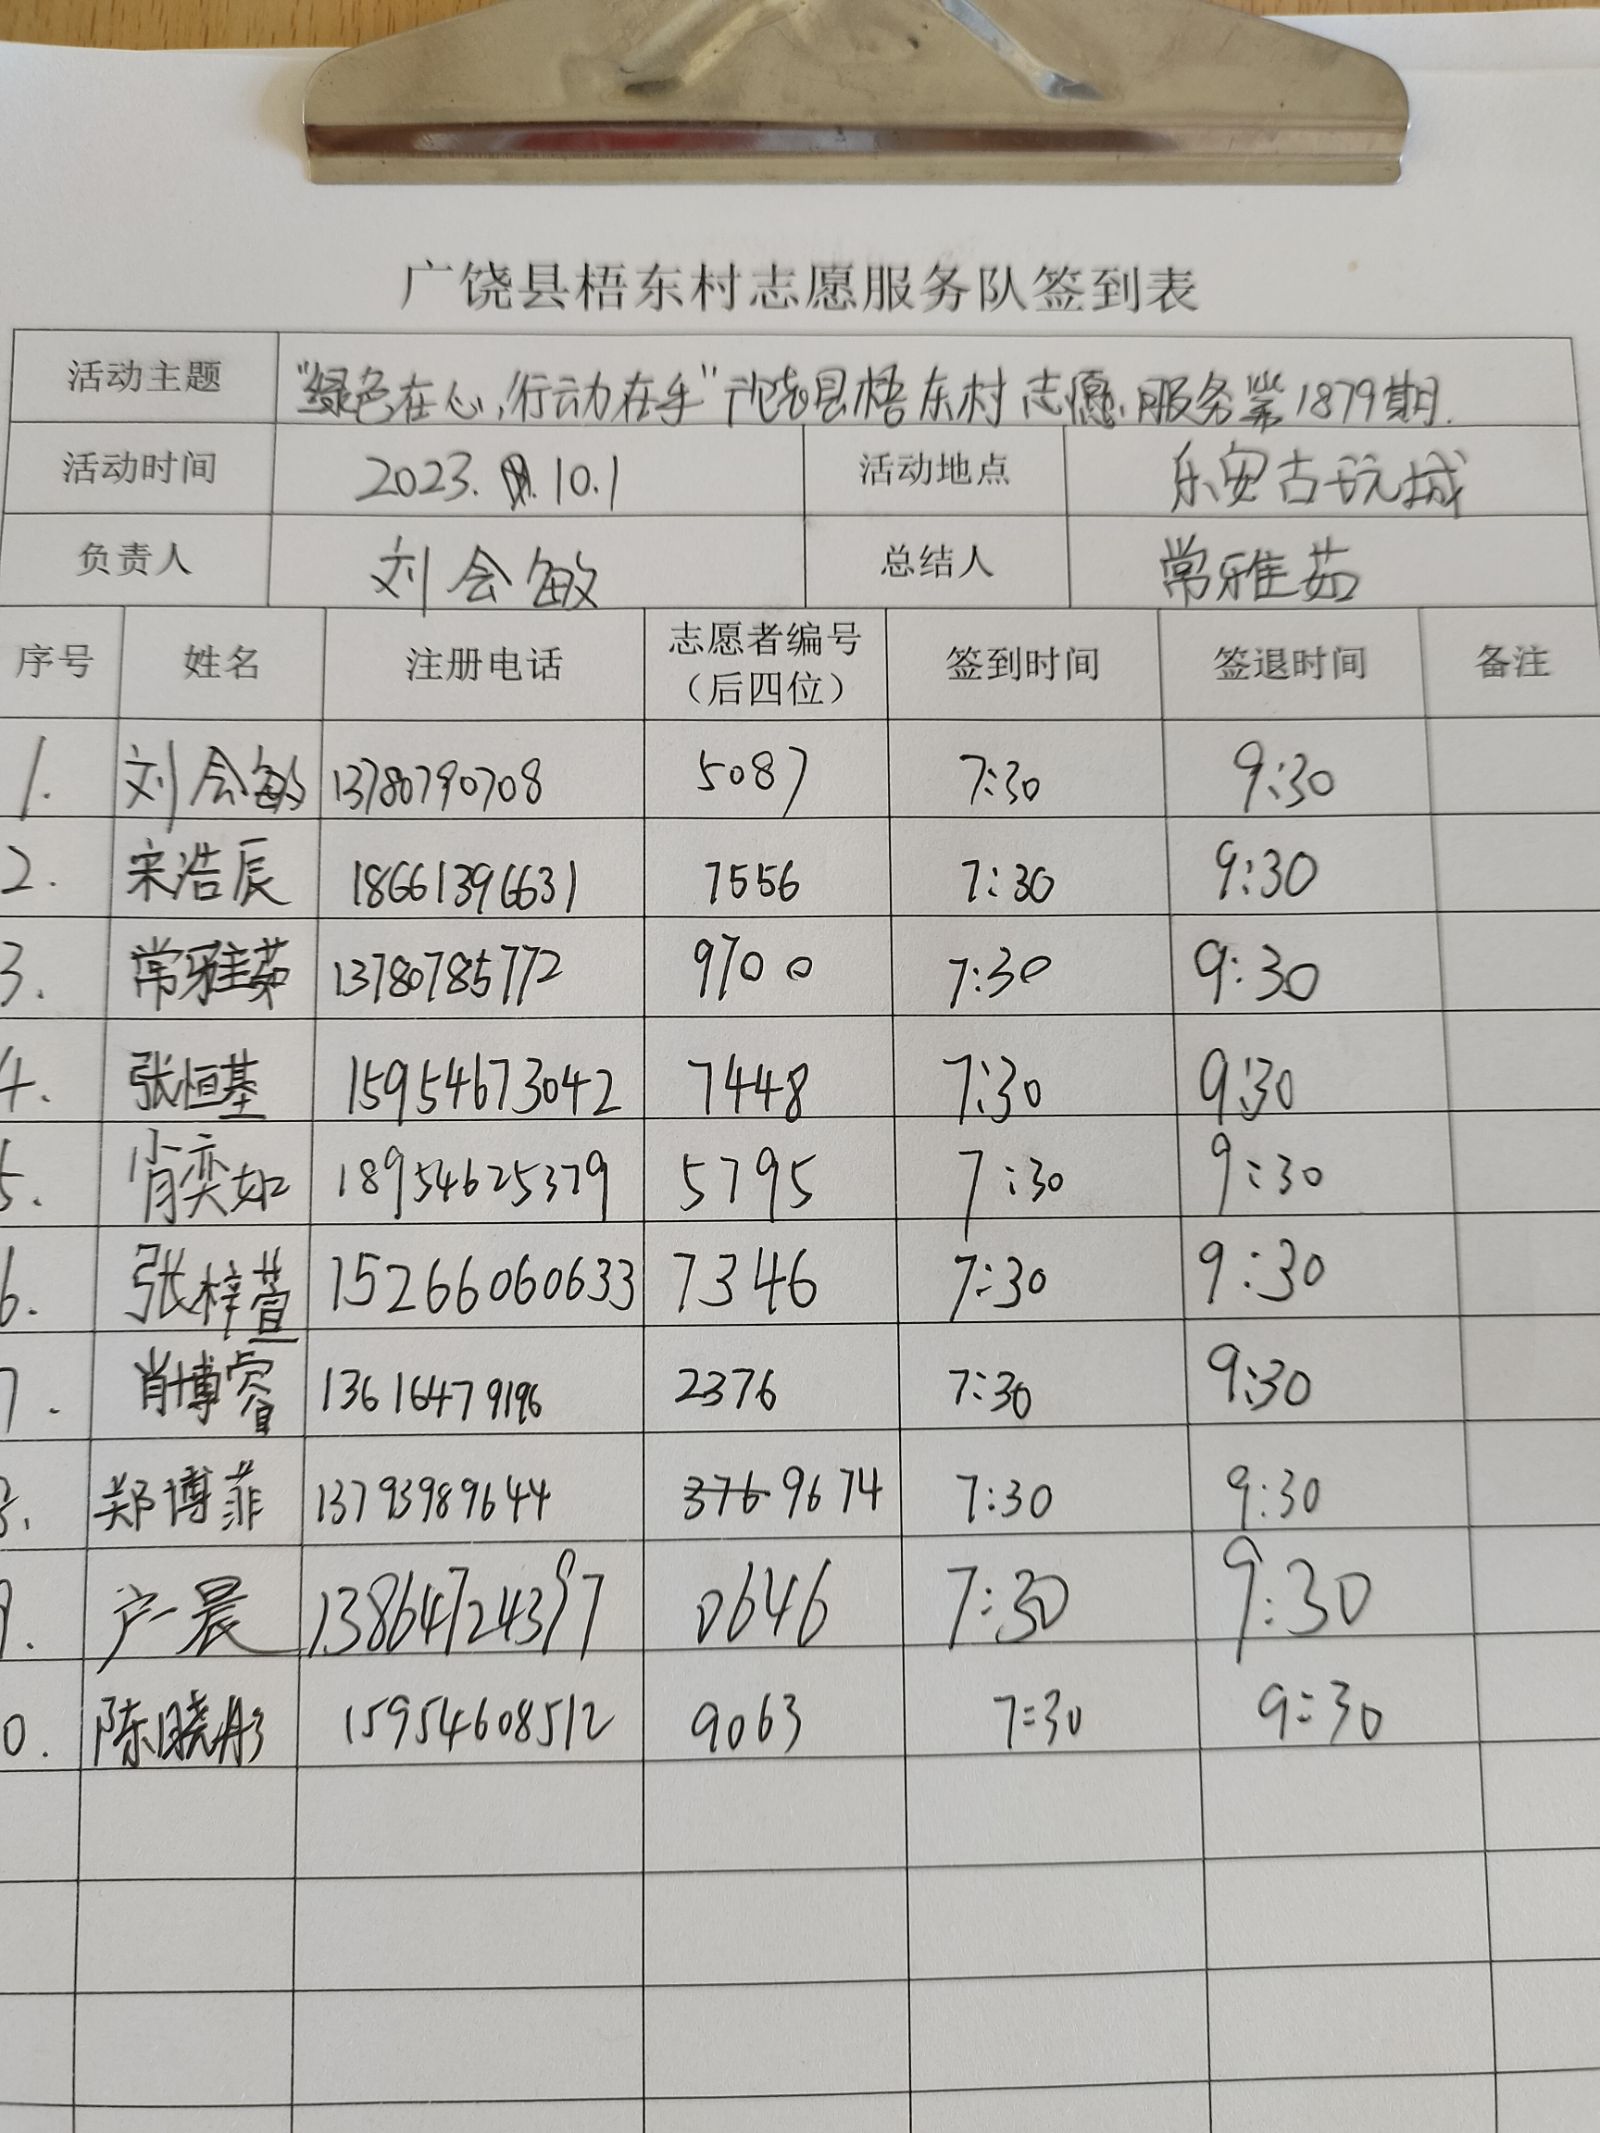 广饶县梧东村志愿服务队签到表
活动主题 "绿色在心,行动在手"广饶县梧东村志愿服务第1879期.
活动时间 2023. 10.1 活动地点 乐安古玩城
负责人 刘会敏 总结人 常雅茹
序号 姓名 注册电话 志愿者编号（后四位） 签到时间 签退时间 备注
1. 刘会敏 13780790708 5087 7:30 9:30
2. 宋浩辰 18661396631 7556 7:30 9:30
3. 常雅茹 13780785772 9700 7:30 9:30
4. 张恒基 15954673042 7448 7:30 9:30
5. 肖奕如 18954625379 5795 7:30 9:30
6. 张梓萱 15266060633 7346 7:30 9:30
7. 肖博睿 13616479196 2376 7:30 9:30
8. 郑博菲 13793989644 376 9674 7:30 9:30
9. 户一晨 13864724397 0646 7:30 9:30
0. 陈晓彤 15954608512 9063 7:30 9:30